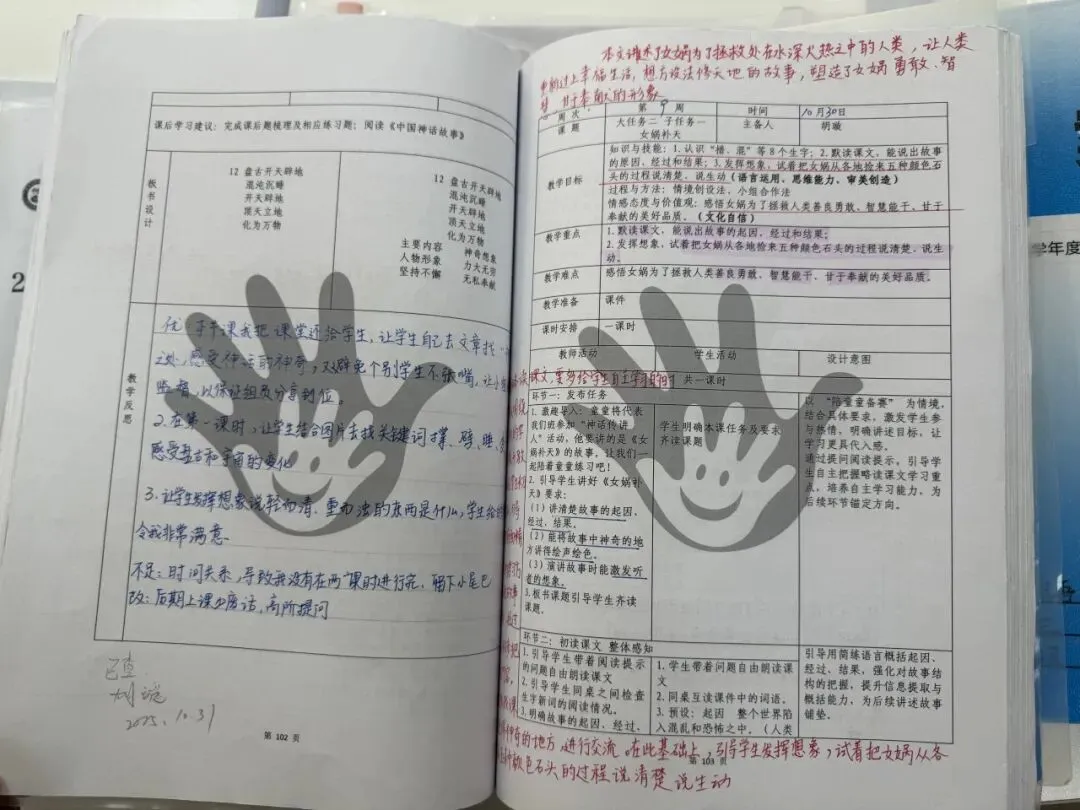 课后学习建议：完成课后题梳理及相应练习题；阅读《中国神话故事》
板书设计
12 盘古开天辟地
混沌沉睡
开天辟地
顶天立地
化为万物
12 盘古开天辟地
混沌沉睡
开天辟地
顶天立地
化为万物
主要内容 神奇想象
人物形象 力大无穷
坚持不懈 无私奉献
教学反思
优：1.本节课我把课堂还给学生，让学生自己去文章找
之处，感受神话的神奇，又避免个别学生不张嘴，让小
监督，以保证组员分享到位。
2.在第一课时，让学生结合图片去找关键词撑、劈、睡
感受盘古和宇宙的变化
3.让学生发挥想象说轻而清、重而浊的东西是什么，学生给的
令我非常满意
不足：时间关系，导致我没有在两课时进行完，留下小尾巴
改：后期上课少废话，高阶提问
已查
2025.10.31
第 102 页
本文讲术了女娲为了拯救处在水深火热之中的人类，让人类
重新过上幸福生活，想方设法修天地的故事，塑造了女娲勇敢、智
慧、甘于奉献的形象
周次 第 9 周 时间 10月30日
课题 大任务二 子任务一 女娲补天 主备人 胡璇
教学目标
知识与技能：1.认识“措、混”等8个生字；2.默读课文，能说出故事
的原因、经过和结果；3.发挥想象，试着把女娲从各地捡来五种颜色石
头的过程说清楚、说生动（语言运用、思维能力、审美创造）
过程与方法：情境创设法、小组合作法
情感态度与价值观：感悟女娲为了拯救人类善良勇敢、智慧能干、甘于
奉献的美好品质。（文化自信）
教学重点
1.默读课文，能说出故事的起因、经过和结果；
2.发挥想象，试着把女娲从各地捡来五种颜色石头的过程说清楚、说生
动。
教学难点 感悟女娲为了拯救人类善良勇敢、智慧能干、甘于奉献的美好品质。
教学准备 课件
课时安排 一课时
教师活动 学生活动 设计意图
读课文，要多给学生自主学习时间
共一课时
环节一：发布任务
1.激趣导入：童童将代表
我们班参加“神话传讲
人”活动，他要讲的是《女
娲补天》的故事，让我们一
起陪着童童练习吧！
2.引导学生讲好《女娲补
天》要求：
（1）讲清楚故事的起因、
经过、结果。
（2）能将故事中神奇的地
方讲得绘声绘色。
（3）演讲故事时能激发听
者的想象。
3.板书课题引导学生齐读
课题。
学生明确本课任务及要求
齐读课题
以“陪童童备赛”为情境，
结合具体要求，激发学生参
与热情，明确讲述目标，让
学习更具代入感。
通过提问阅读提示，引导学
生自主把握略读课文学习重
点，培养自主学习能力，为
后续环节锚定方向。
环节二：初读课文 整体感知
1.引导学生带着阅读提示
的问题自由朗读课文
2.引导学生同桌之间检查
生字新词的阅读情况。
3.明确故事的起因、经过、
1.学生带着问题自由朗读课
文
2.同桌互读课件中的词语。
3.预设：起因 整个世界陷
入混乱和恐怖之中。（人类
引导用简练语言概括起因、
经过、结果，强化对故事结
构的把握，提升信息提取与
概括能力，为后续讲述故事
铺垫。
神奇的地方，进行交流。在此基础上，引导学生发挥想象，试着把女娲从各
第 103 页
种颜色石头的过程说清楚说生动
学年度